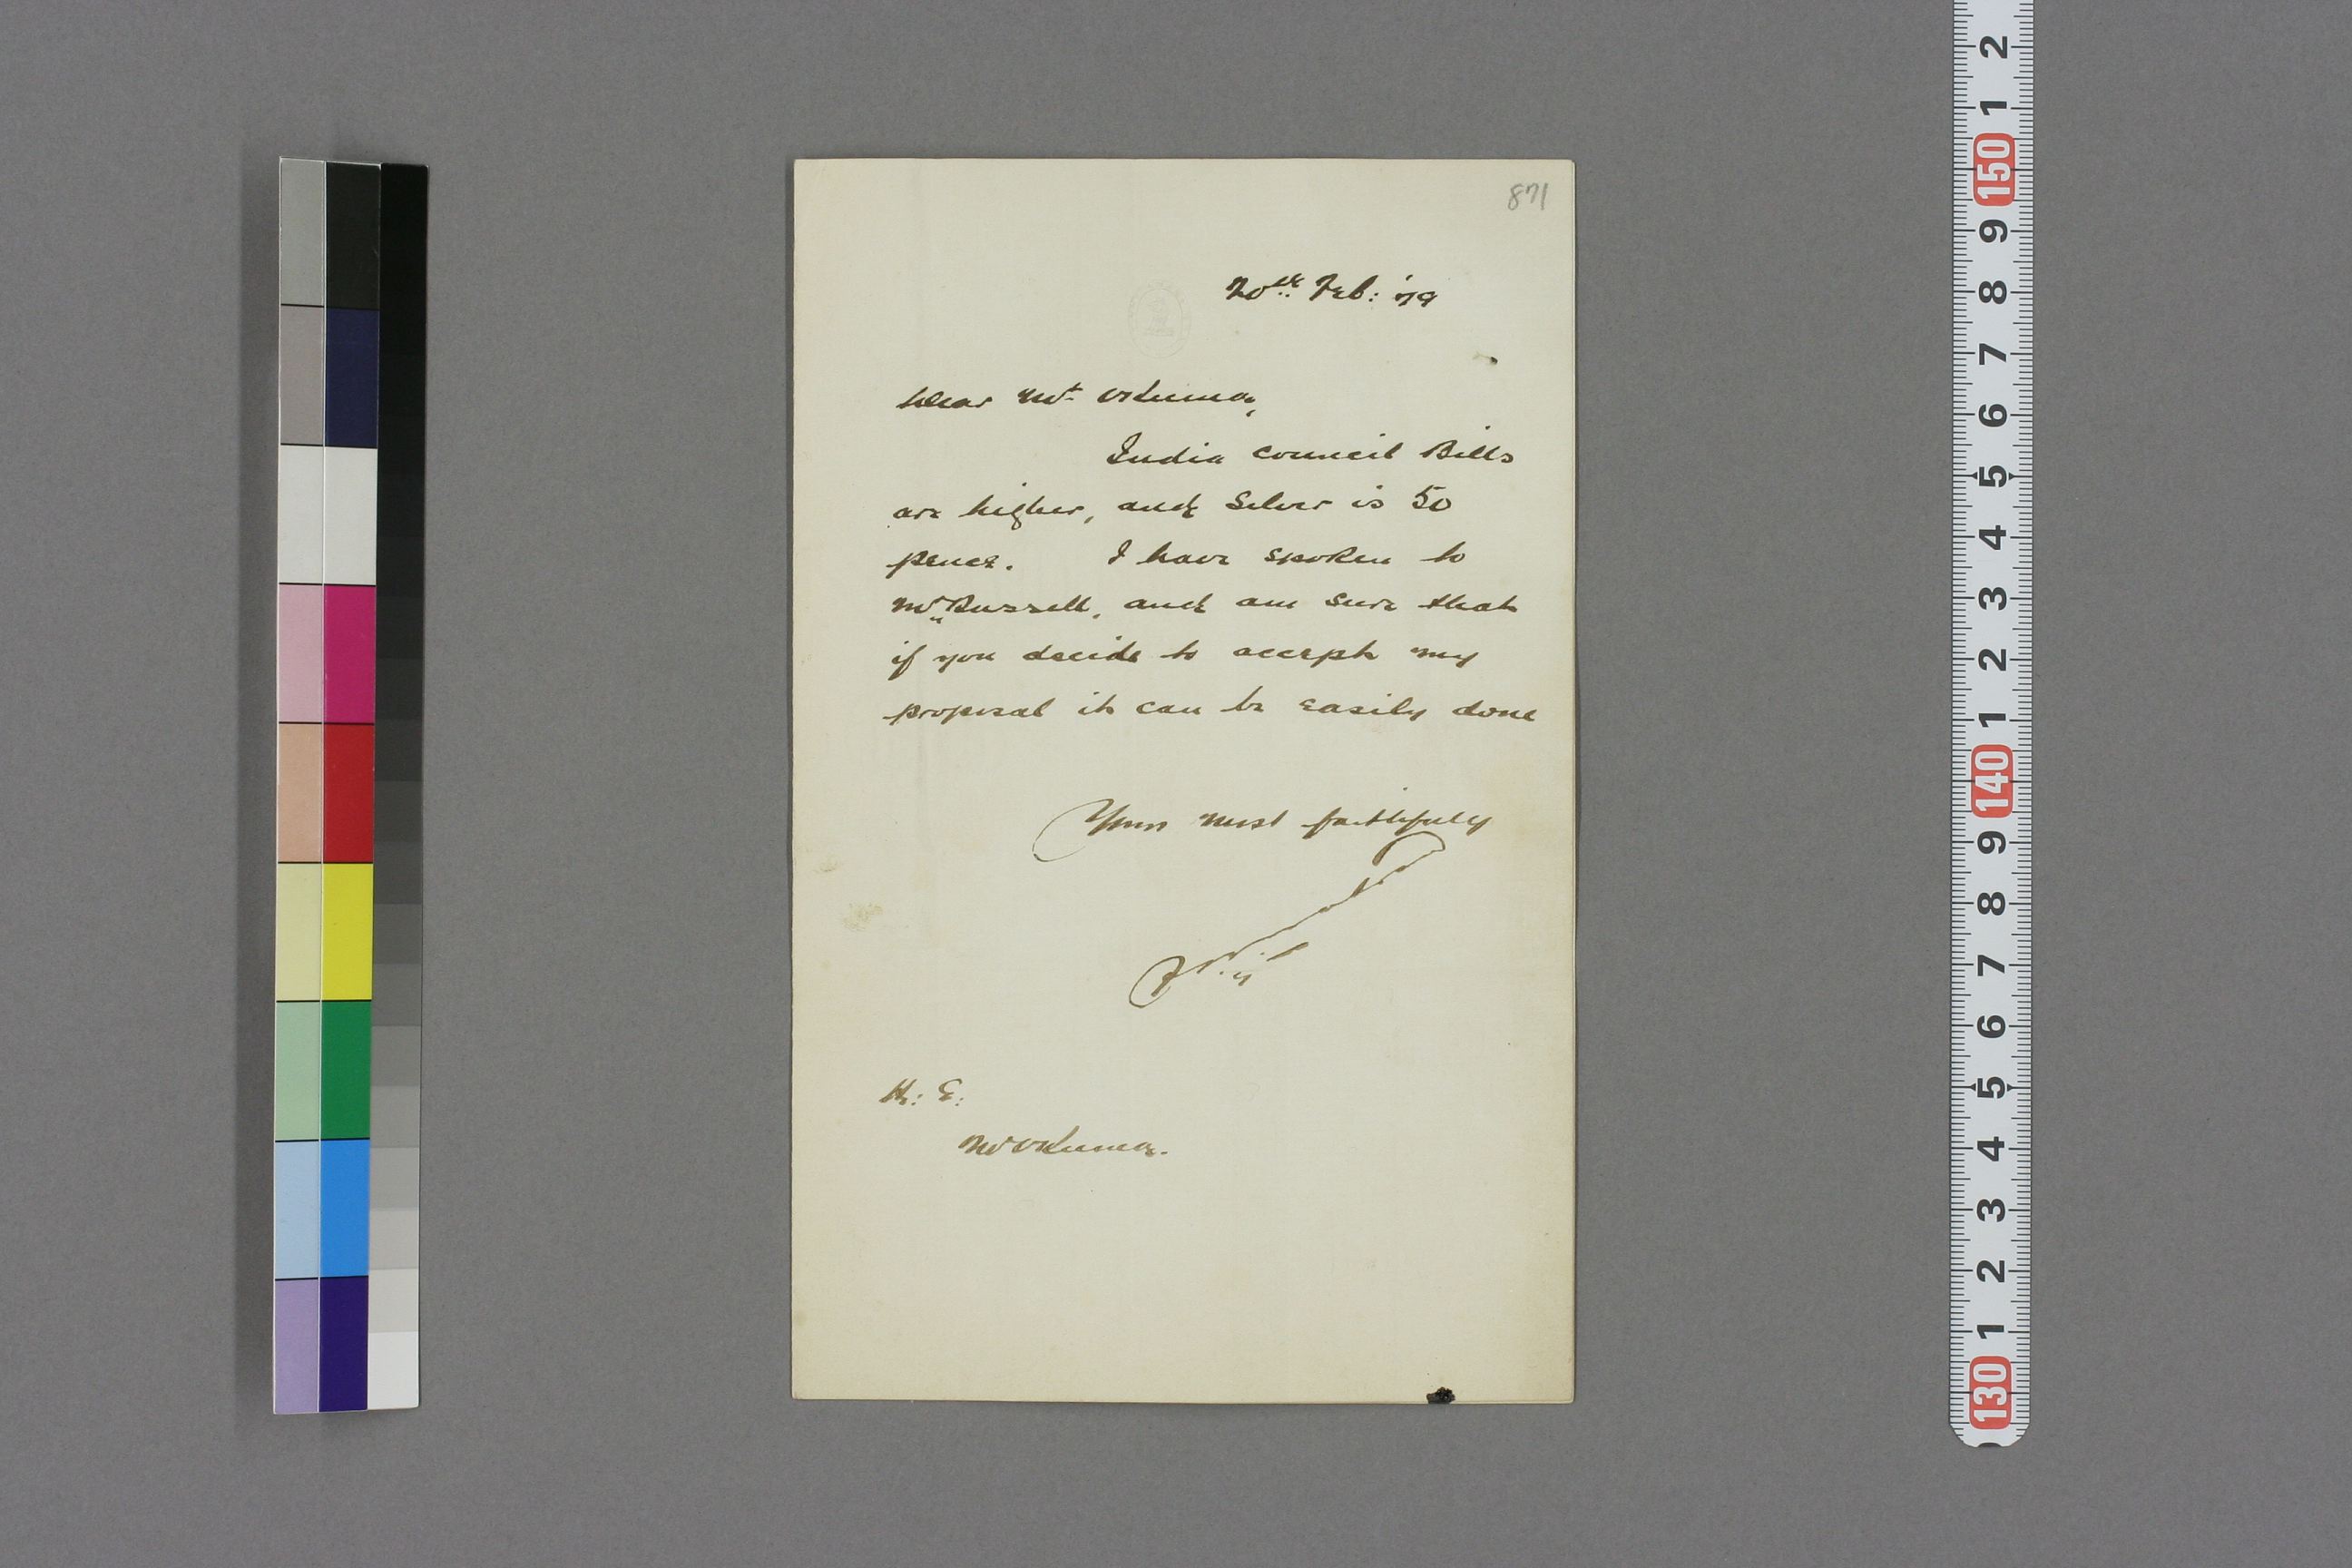 871
20th Feb: '79
Dear Mr Okuma,
India Council Bills
are higher, and Silver is 50
pence. I have spoken to
Mr Russell, and am sure that
if you decide to accept my
proposal it can be easily done
Yours most faithfully
H: E:
Mr Okuma.
2
1
150
9
8
7
6
5
4
3
2
1
140
9
8
7
6
5
4
3
2
1
130